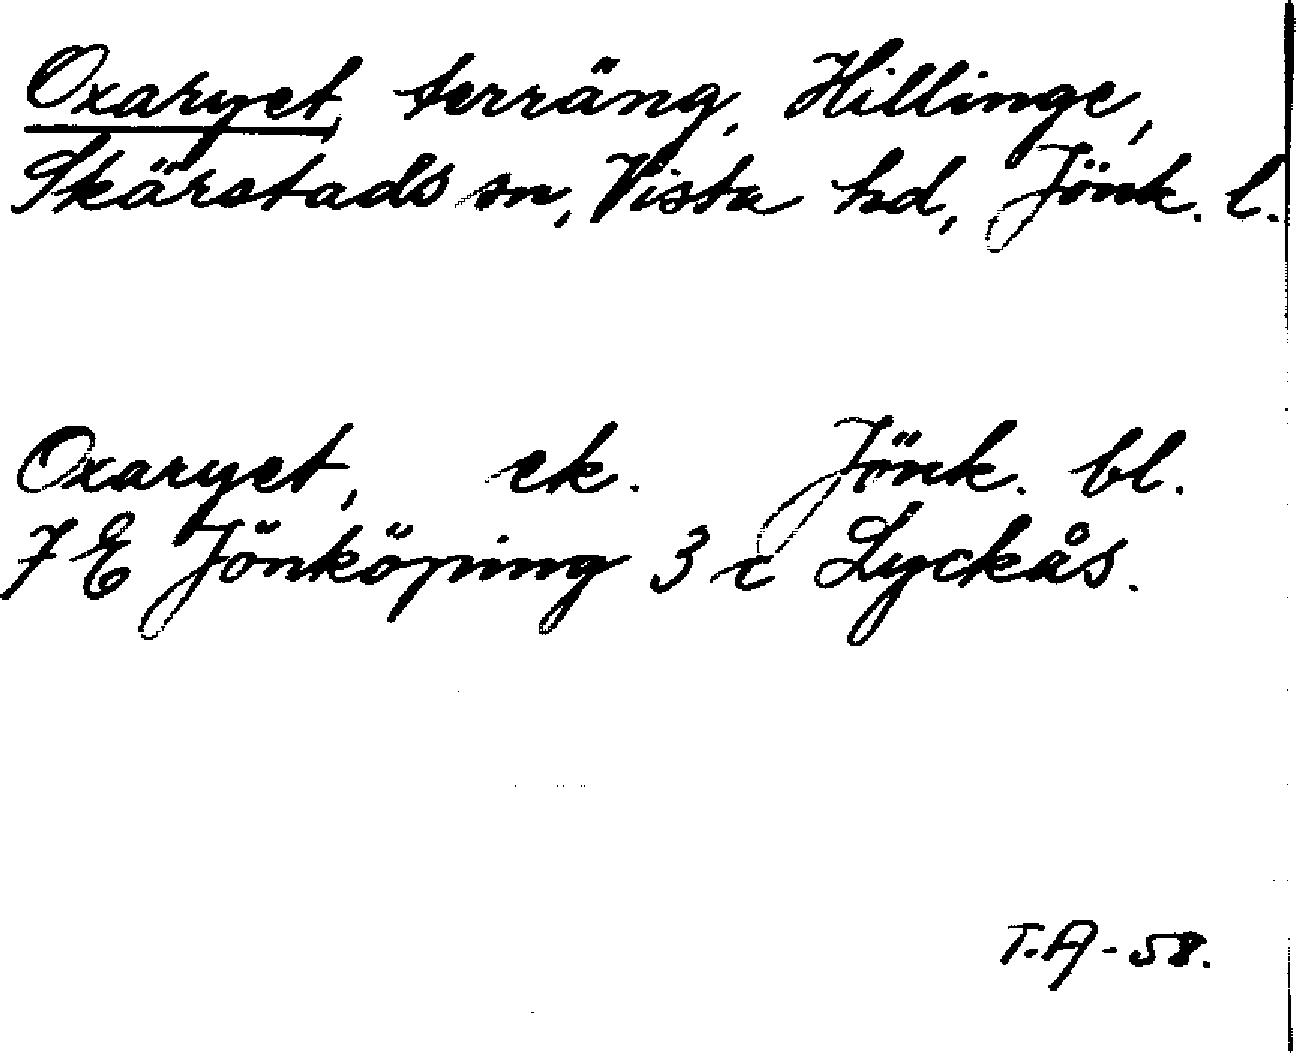 Oxaryet, terräng, Hillinge,
Skärstads sn, Vista hd, Jönk. l.
Oxaryet, ek. Jönk. bl.
7 E Jönköping 3 c Lyckås.
T.A-58.